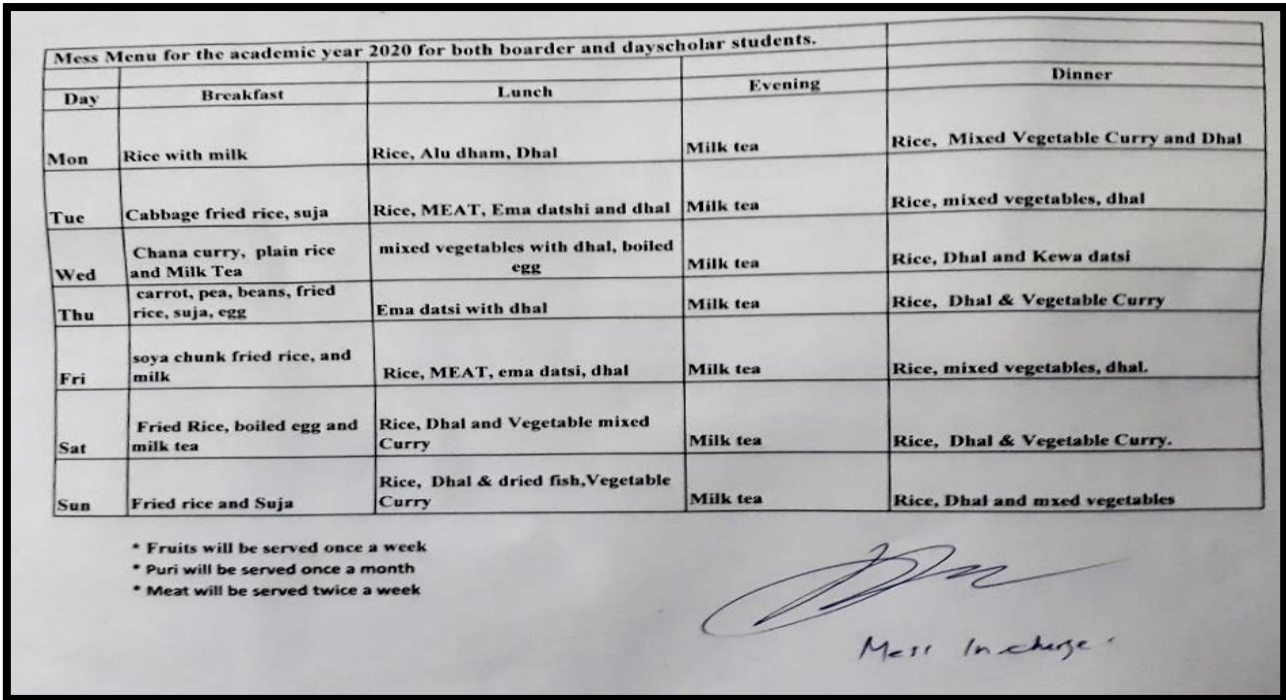 Mess Menu for the academic year 2020 for both boarder and dayscholar students.
Day Breakfast Lunch Evening Dinner
Mon Rice with milk Rice, Alu dham, Dhal Milk tea Rice, Mixed Vegetable Curry and Dhal
Tue Cabbage fried rice, suja Rice, MEAT, Ema datshi and dhal Milk tea Rice, mixed vegetables, dhal
Wed Chana curry, plain rice
and Milk Tea
mixed vegetables with dhal, boiled
egg
Milk tea
Rice, Dhal and Kewa datsi
Thu carrot, pea, beans, fried
rice, suja, egg
Ema datsi with dhal
Milk tea
Rice, Dhal & Vegetable Curry
Fri soya chunk fried rice, and
milk
Rice, MEAT, ema datsi, dhal
Milk tea
Rice, mixed vegetables, dhal.
Sat Fried Rice, boiled egg and
milk tea
Rice, Dhal and Vegetable mixed
Curry
Milk tea
Rice, Dhal & Vegetable Curry.
Sun Fried rice and Suja
Rice, Dhal & dried fish,Vegetable
Curry
Milk tea
Rice, Dhal and mxed vegetables
* Fruits will be served once a week
* Puri will be served once a month
* Meat will be served twice a week
Mess Incharge.